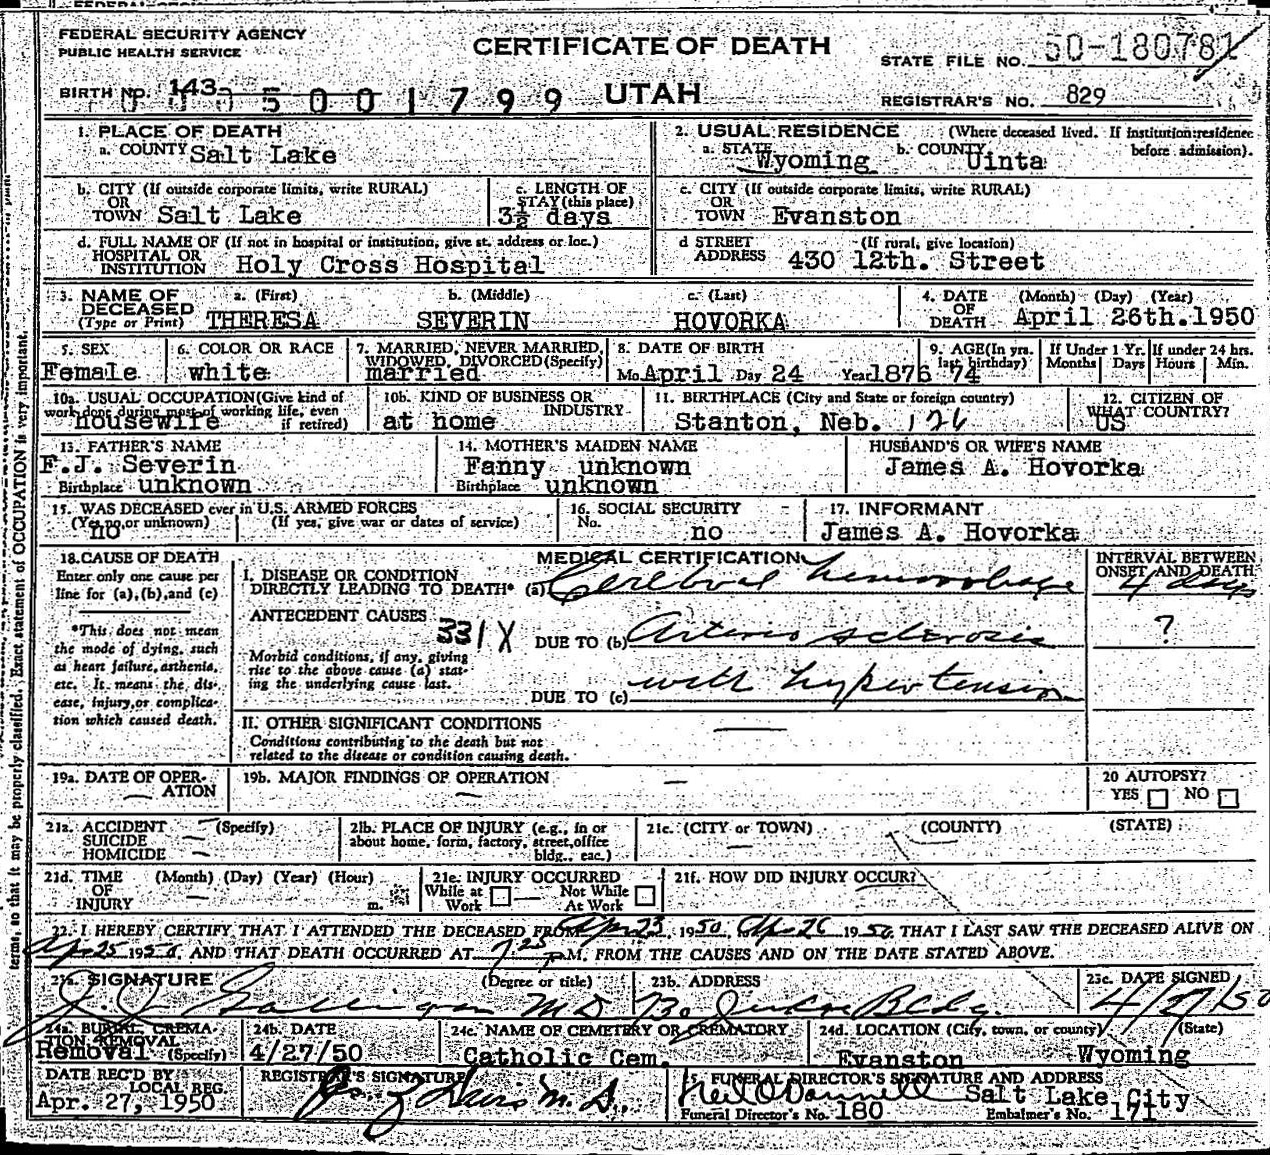 FEDERAL SECURITY AGENCY
PUBLIC HEALTH SERVICE
CERTIFICATE OF DEATH
UTAH
STATE FILE NO. 50-180781
BIRTH NO. 143
0005001799
REGISTRAR'S NO. 829
1. PLACE OF DEATH
a. COUNTY Salt Lake
2. USUAL RESIDENCE (Where deceased lived. If institution:residence before admission).
a. STATE Wyoming b. COUNTY Uinta
b. CITY (If outside corporate limits, write RURAL)
OR
TOWN Salt Lake
c. LENGTH OF
STAY (this place)
3½ days
c. CITY (If outside corporate limits, write RURAL)
OR
TOWN Evanston
d. FULL NAME OF (If not in hospital or institution, give st. address or loc.)
HOSPITAL OR
INSTITUTION Holy Cross Hospital
d STREET (If rural, give location)
ADDRESS 430 12th. Street
3. NAME OF DECEASED (Type or Print)
a. (First) b. (Middle) c. (Last)
THERESA SEVERIN HOVORKA
4. DATE OF DEATH (Month) (Day) (Year)
April 26th.1950
5. SEX
Female
6. COLOR OR RACE
white
7. MARRIED, NEVER MARRIED, WIDOWED, DIVORCED (Specify)
married
8. DATE OF BIRTH
Mo. April Day 24 Year 1876
9. AGE (In yrs. last birthday)
74
If Under 1 Yr. Months Days
If under 24 hrs. Hours Min.
10a. USUAL OCCUPATION (Give kind of work done during most of working life, even if retired)
housewife
10b. KIND OF BUSINESS OR INDUSTRY
at home
11. BIRTHPLACE (City and State or foreign country)
Stanton, Neb. 126
12. CITIZEN OF WHAT COUNTRY?
US
13. FATHER'S NAME
F.J. Severin
Birthplace unknown
14. MOTHER'S MAIDEN NAME
Fanny unknown
Birthplace unknown
HUSBAND'S OR WIFE'S NAME
James A. Hovorka
15. WAS DECEASED ever in U.S. ARMED FORCES
(Yes, no, or unknown) (If yes, give war or dates of service)
no
16. SOCIAL SECURITY
No. no
17. INFORMANT
James A. Hovorka
18. CAUSE OF DEATH
Enter only one cause per
line for (a), (b), and (c)
*This does not mean
the mode of dying, such
as heart failure, asthenia,
etc. It means the dis-
ease, injury, or complica-
tion which caused death.
MEDICAL CERTIFICATION
INTERVAL BETWEEN
ONSET AND DEATH
I. DISEASE OR CONDITION
DIRECTLY LEADING TO DEATH* (a) Cerebral hemorrhage
4 days
ANTECEDENT CAUSES
331X
DUE TO (b) Arterio sclerosis
?
Morbid conditions, if any, giving
rise to the above cause (a) stat-
ing the underlying cause last.
DUE TO (c) with hypertension
II. OTHER SIGNIFICANT CONDITIONS
Conditions contributing to the death but not
related to the disease or condition causing death.
19a. DATE OF OPER-
ATION
19b. MAJOR FINDINGS OF OPERATION
20 AUTOPSY?
YES NO
21a. ACCIDENT (Specify)
SUICIDE
HOMICIDE
21b. PLACE OF INJURY (e.g., in or
about home, form, factory, street, office
bldg., eac.)
21c. (CITY or TOWN) (COUNTY) (STATE)
21d. TIME (Month) (Day) (Year) (Hour)
OF
INJURY m.
21e. INJURY OCCURRED
While at Work Not While At Work
21f. HOW DID INJURY OCCUR?
22. I HEREBY CERTIFY THAT I ATTENDED THE DECEASED FROM Apr 23 1950, Apr 26 1950, THAT I LAST SAW THE DECEASED ALIVE ON
Apr 25 1950, AND THAT DEATH OCCURRED AT 7:25 P M. FROM THE CAUSES AND ON THE DATE STATED ABOVE.
23a. SIGNATURE (Degree or title)
M D
23b. ADDRESS
Bldg.
23c. DATE SIGNED
4/27/50
24a. BURIAL, CREMA-
TION, REMOVAL (Specify)
Removal
24b. DATE
4/27/50
24c. NAME OF CEMETERY OR CREMATORY
Catholic Cem.
24d. LOCATION (City, town, or county) (State)
Evanston Wyoming
DATE REC'D BY LOCAL REG.
Apr. 27, 1950
REGISTRAR'S SIGNATURE
M. D.
FUNERAL DIRECTOR'S SIGNATURE AND ADDRESS
Neil O'Donnell Salt Lake City
Funeral Director's No. 180 Embalmer's No. 171
terms, so that it may be properly classified. Exact statement of OCCUPATION is very important.